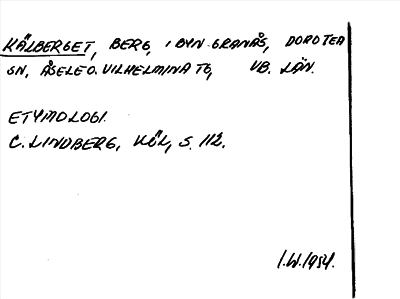 KÄLBERGET, BERG, I BYN GRANÅS, DOROTEA
SN, ÅSELE O. VILHELMINA TG, VB. LÄN.
ETYMOLOGI.
C. LINDBERG, KÖL, S. 112.
I.W. 1954.